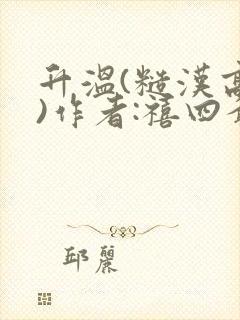 升温(糙漢高
)作者:禧四
邱麗